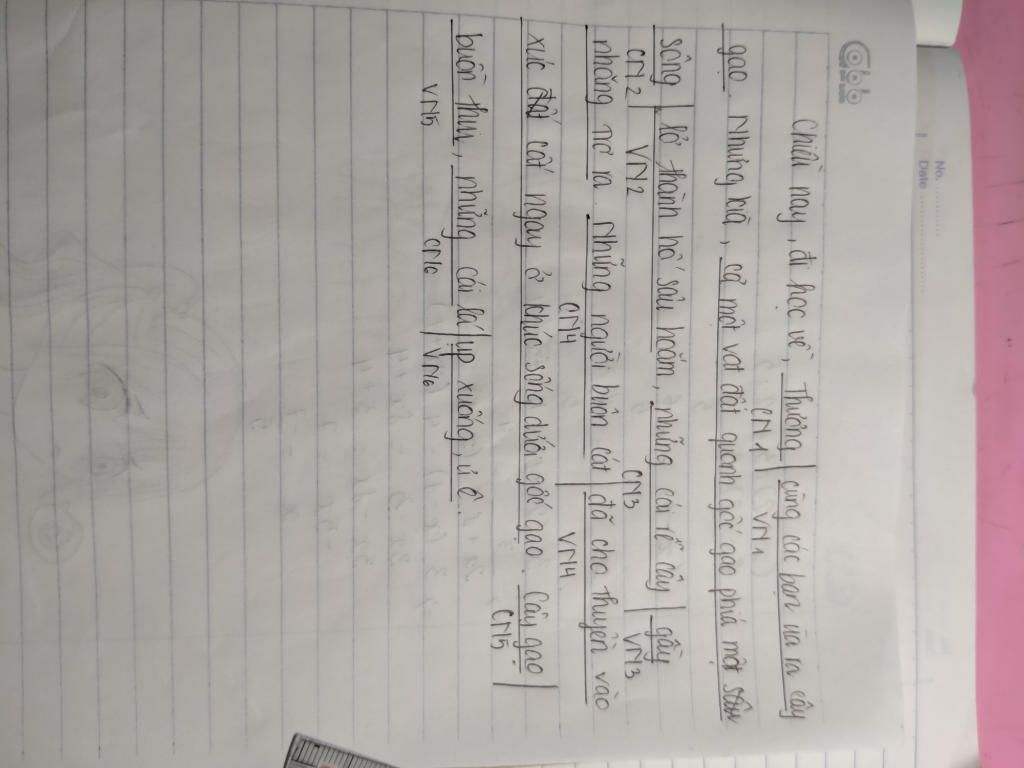 No.
Date
Chiều nay, đi học về, Thương cùng các bạn ùa ra cây
CN1 VN1
gạo. Nhưng kìa, cả một vạt đất quanh gốc gạo phía mặt
sông lở thành hố sâu hoắm, những cái rễ cây gầy
CN2 VN2 CN3 VN3
nhẳng nhô ra. Những người buôn cát đã cho thuyền vào
CN4 VN4
xúc cát ngay ở khúc sông dưới gốc gạo. Cây gạo
CN5
buồn thiu, những cái lá cụp xuống, ủ ê.
VN5 CN6 VN6